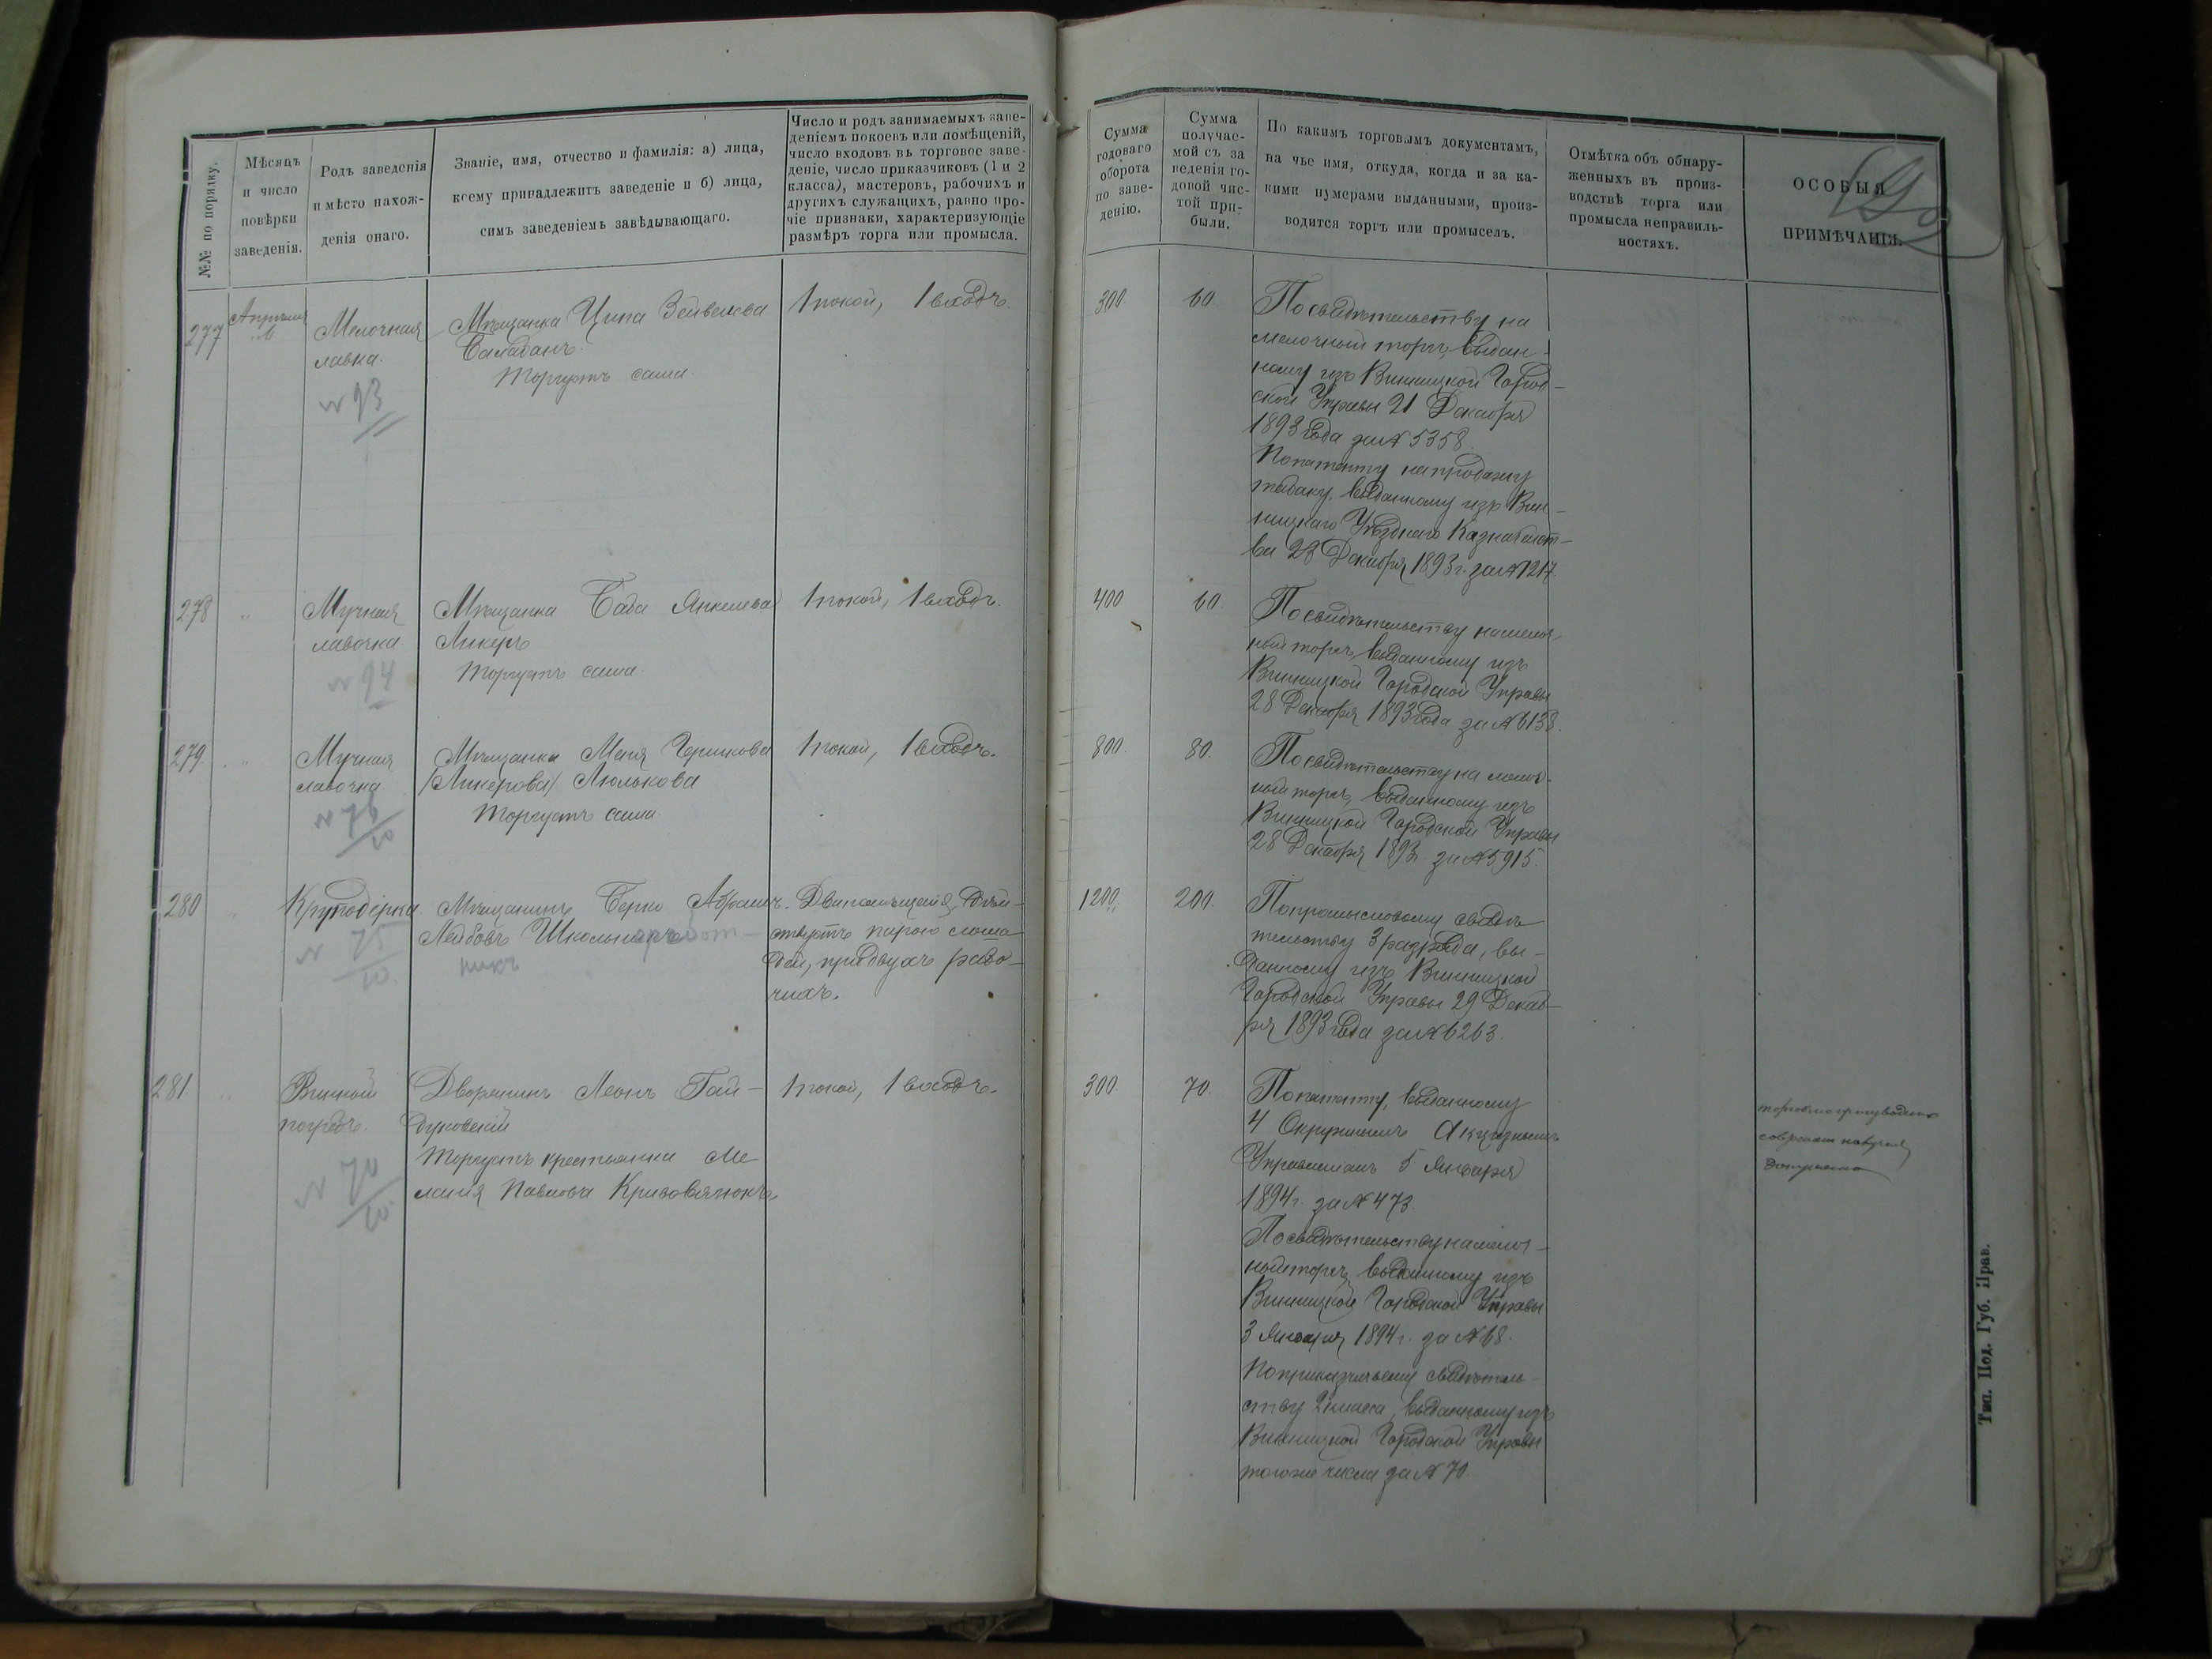 №№ по порядку.
Мѣсяцъ
и число
повѣрки
заведенія.
Родъ заведенія
и мѣсто нахож-
денія онаго.
Званіе, имя, отчество и фамилія: а) лица,
коему принадлежитъ заведеніе и б) лица,
симъ заведеніемъ завѣдывающаго.
Число и родъ занимаемыхъ заве-
деніемъ покоевъ или помѣщеній,
число входовъ въ торговое заве-
деніе, число приказчиковъ (1 и 2
класса), мастеровъ, рабочихъ и
другихъ служащихъ, равно про-
чіе признаки, характеризующіе
размѣръ торга или промысла.
Сумма
годоваго
оборота
по заве-
денію.
Сумма
получае-
мой съ за
веденія го-
довой чис-
той при-
были.
По какимъ торговымъ документамъ,
на чье имя, откуда, когда и за ка-
кими нумерами выданными, произ-
водится торгъ или промыселъ.
Отмѣтка объ обнару-
женныхъ въ произ-
водствѣ торга или
промысла неправиль-
ностяхъ.
ОСОБЫЯ
ПРИМѢЧАНІЯ.
277
Апрѣля
6
Мелочная
лавка.
№ 93
Мѣщанка Ципа Зейвелева
Балабанъ.
Торгуетъ сама.
1 покой, 1 входъ.
300.
60
По свидѣтельству на
мелочный торгъ, выдан-
ному изъ Винницкой Город-
ской Управы 21 Декабря
1893 года за № 5358.
По патенту на продажу
табаку, выданному изъ Вин-
ницкаго Уѣзднаго Казначейст-
ва 28 Декабря 1893 г. за № 1217.
278
"
Мучная
лавочка
№ 94
Мѣщанка Баба Янкелева
Ликеръ
Торгуетъ сама.
1 покой, 1 входъ.
400
60.
По свидѣтельству на мелоч-
ный торгъ, выданному изъ
Винницкой Городской Управы
28 Декабря 1893 года за № 6138.
279.
"
Мучная
лавочка
№ 76
Мѣщанка Меня Гершкова
/Ликерова/ Люлькова
Торгуетъ сама
1 покой, 1 входъ.
800.
80.
По свидѣтельству на мелоч-
ный торгъ, выданному изъ
Винницкой Городской Управы
28 Декабря 1893 г. за № 5915.
280
"
Круподерка.
№ 75
Мѣщанинъ Берко Абрамъ-
Лейбовъ Школьникъ
Два помѣщенія, дѣй-
ствуетъ парою лоша-
дей, при двухъ рабо-
чихъ.
1200.
200.
По промысловому свидѣ-
тельству 3 разряда, вы-
данному изъ Винницкой
Городской Управы 29 Декаб-
ря 1893 года за № 6263.
281.
"
Винный
погребъ.
№ 70
Дворянинъ Леонъ Гай-
дуковскій
Торгуетъ крестьянка Ме-
ланія Павлова Кривовязюкъ.
1 покой, 1 входъ.
300.
70.
По патенту, выданному
4 Окружнымъ Акцизнымъ
Управленіемъ 5 Января
1894 г. за № 473.
По свидѣтельству на мелоч-
ный торгъ, выданному изъ
Винницкой Городской Управы
3 Января 1894 г. за № 68.
По приказчичьему свидѣтель-
ству 2 класса, выданному изъ
Винницкой Городской Управы
того же числа за № 70.
Тип. Под. Губ. Прав.